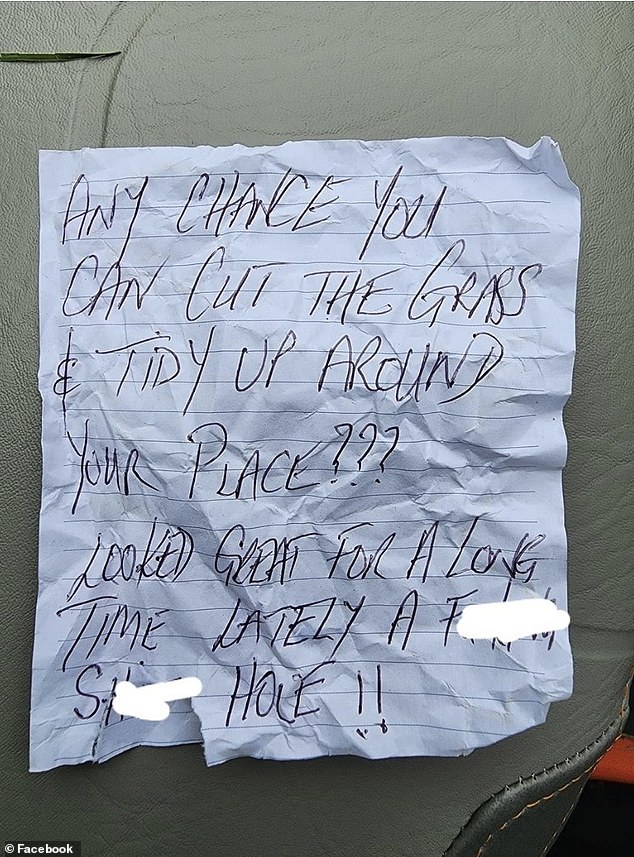 ANY CHANCE YOU
CAN CUT THE GRASS
& TIDY UP AROUND
YOUR PLACE???
LOOKED GREAT FOR A LONG
TIME LATELY A
HOLE !!
Facebook